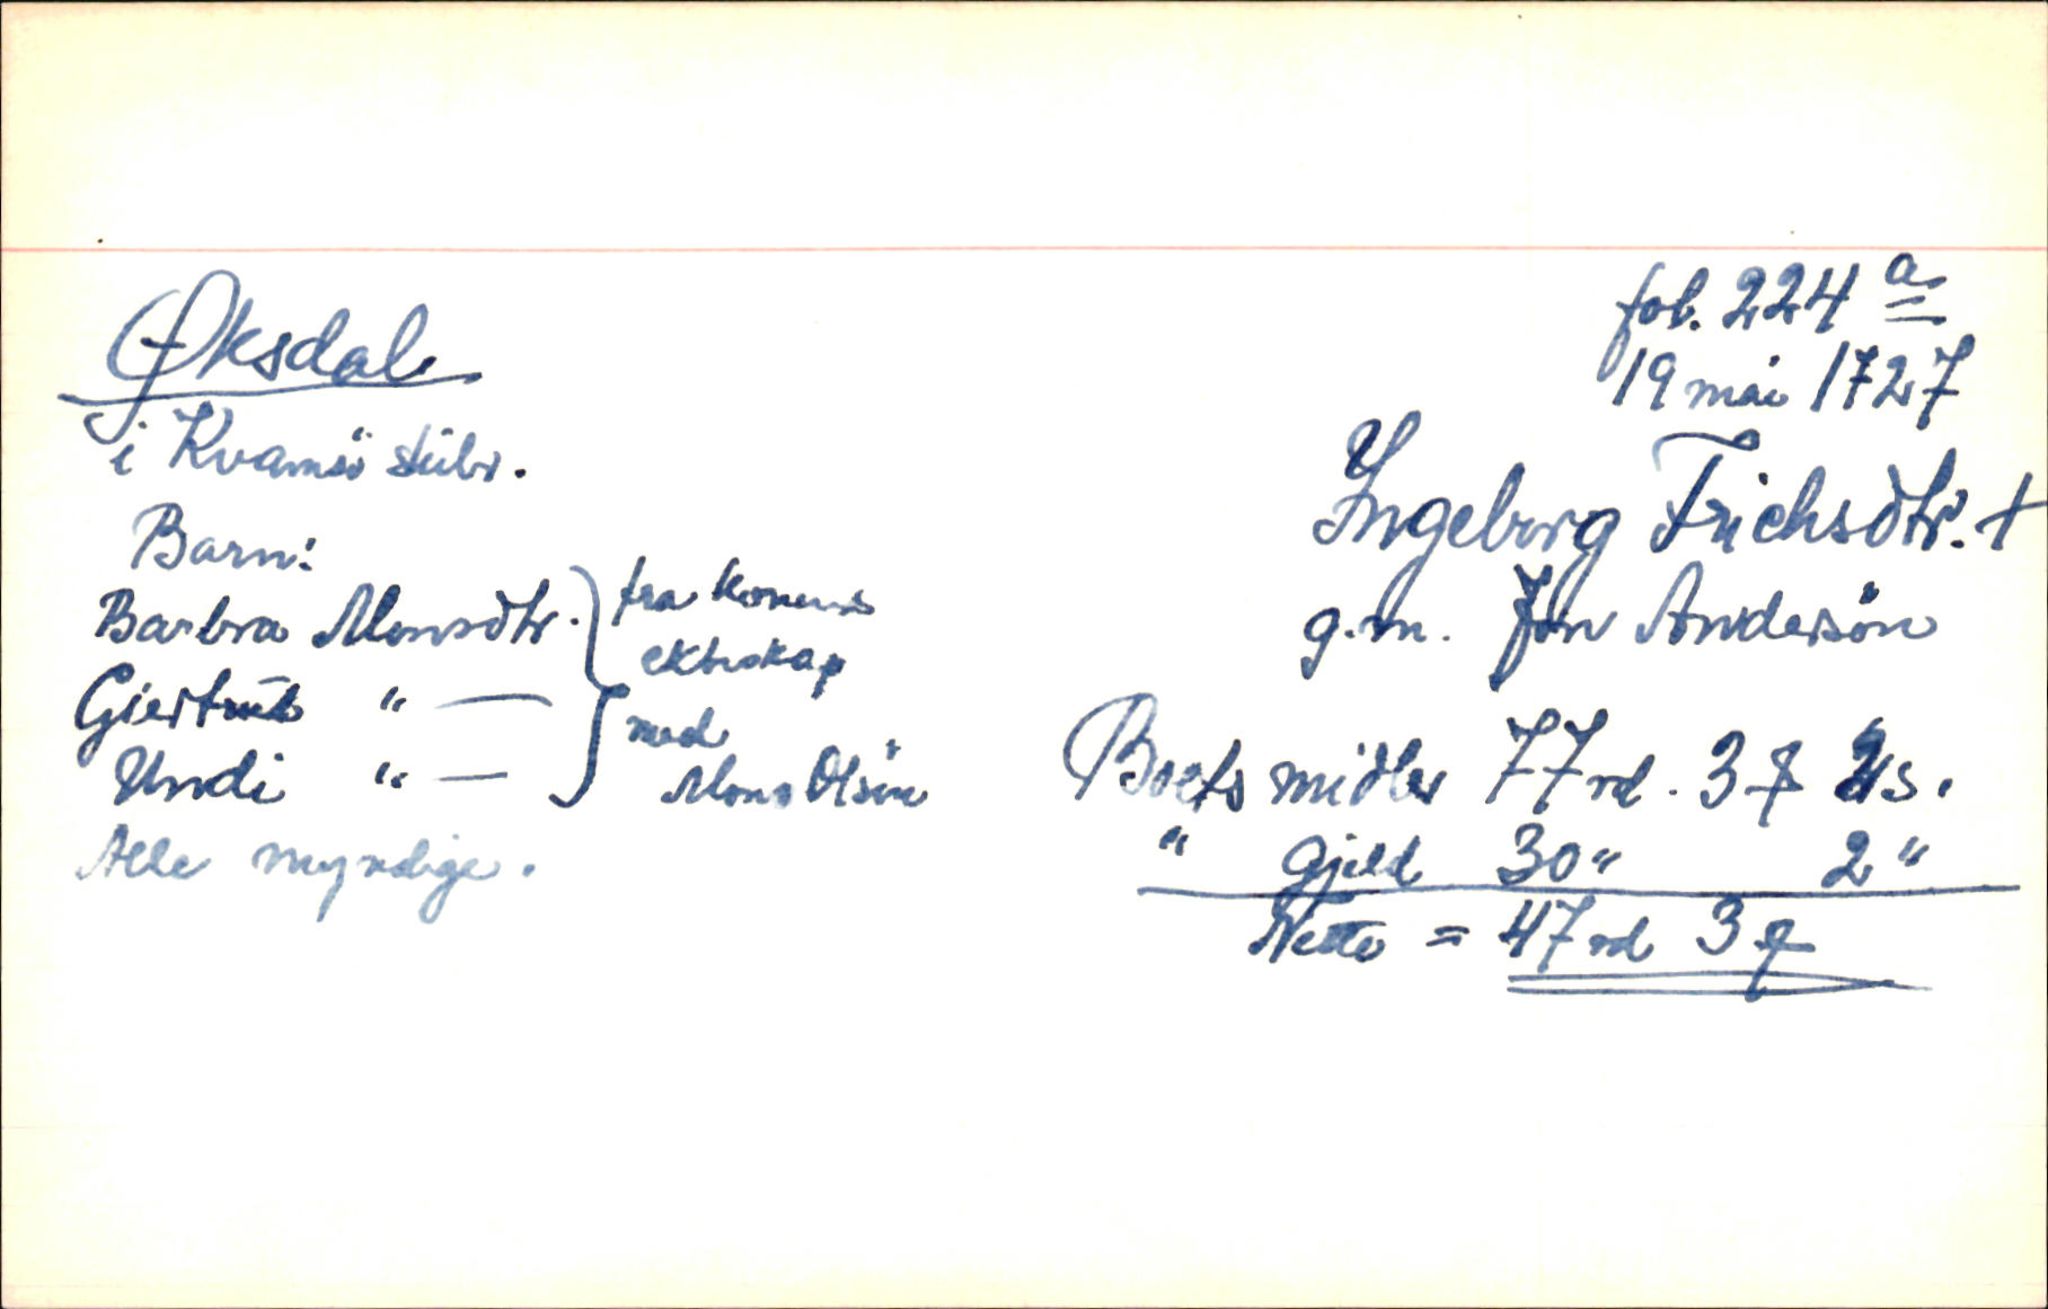 Øksdal
i Kvamsö skibr.
Barn:
Barbra Monsdtr.
Giertrud " —
Undi " —
fra konens
ekteskap
med
Mons Olsön
Alle myndige.
fol. 224 a
19 mai 1727
Ingeborg Frichsdtr. +
g.m. Jon Andersön
Boets midler 77 rd. 3 ƒ 2 s.
" Gjeld 30 " 2 "
Netto = 47 rd 3 ƒ